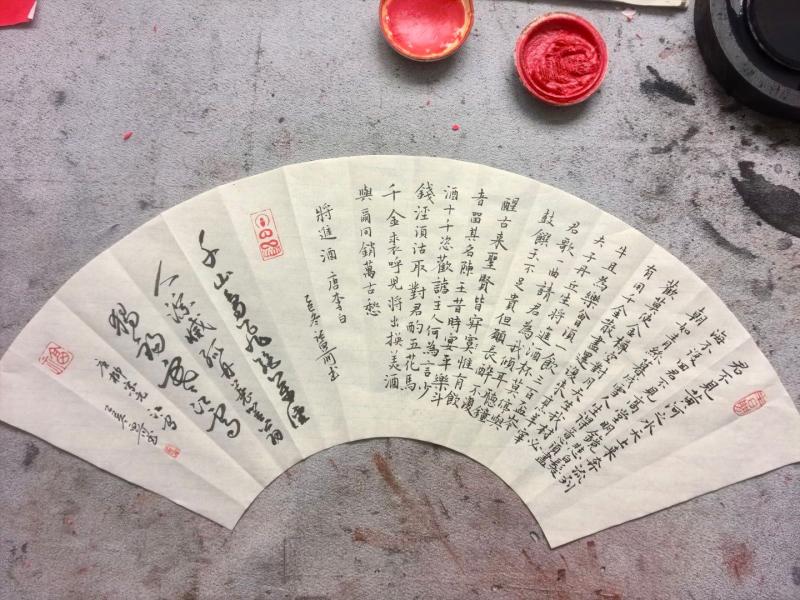 君不見黃河之水天上來奔流到
海不復回君不見高堂明鏡悲白髮
朝如青絲暮成雪人生得意須盡
歡莫使金樽空對月天生我材必
有用千金散盡還復來烹羊宰
牛且為樂會須一飲三百杯岑
夫子丹丘生將進酒杯莫停與
君歌一曲請君為我傾耳聽鐘
鼓饌玉不足貴但願長醉不願
醒古來聖賢皆寂寞惟有飲
者留其名陳王昔時宴平樂斗
酒十千恣歡謔主人何為言少
錢徑須沽取對君酌五花馬
千金裘呼兒將出換美酒
與爾同銷萬古愁
將進酒 唐李白
己亥冬
千山鳥飛絕萬徑
人踪滅孤舟蓑笠翁
獨釣寒江雪
唐柳宗元 江雪